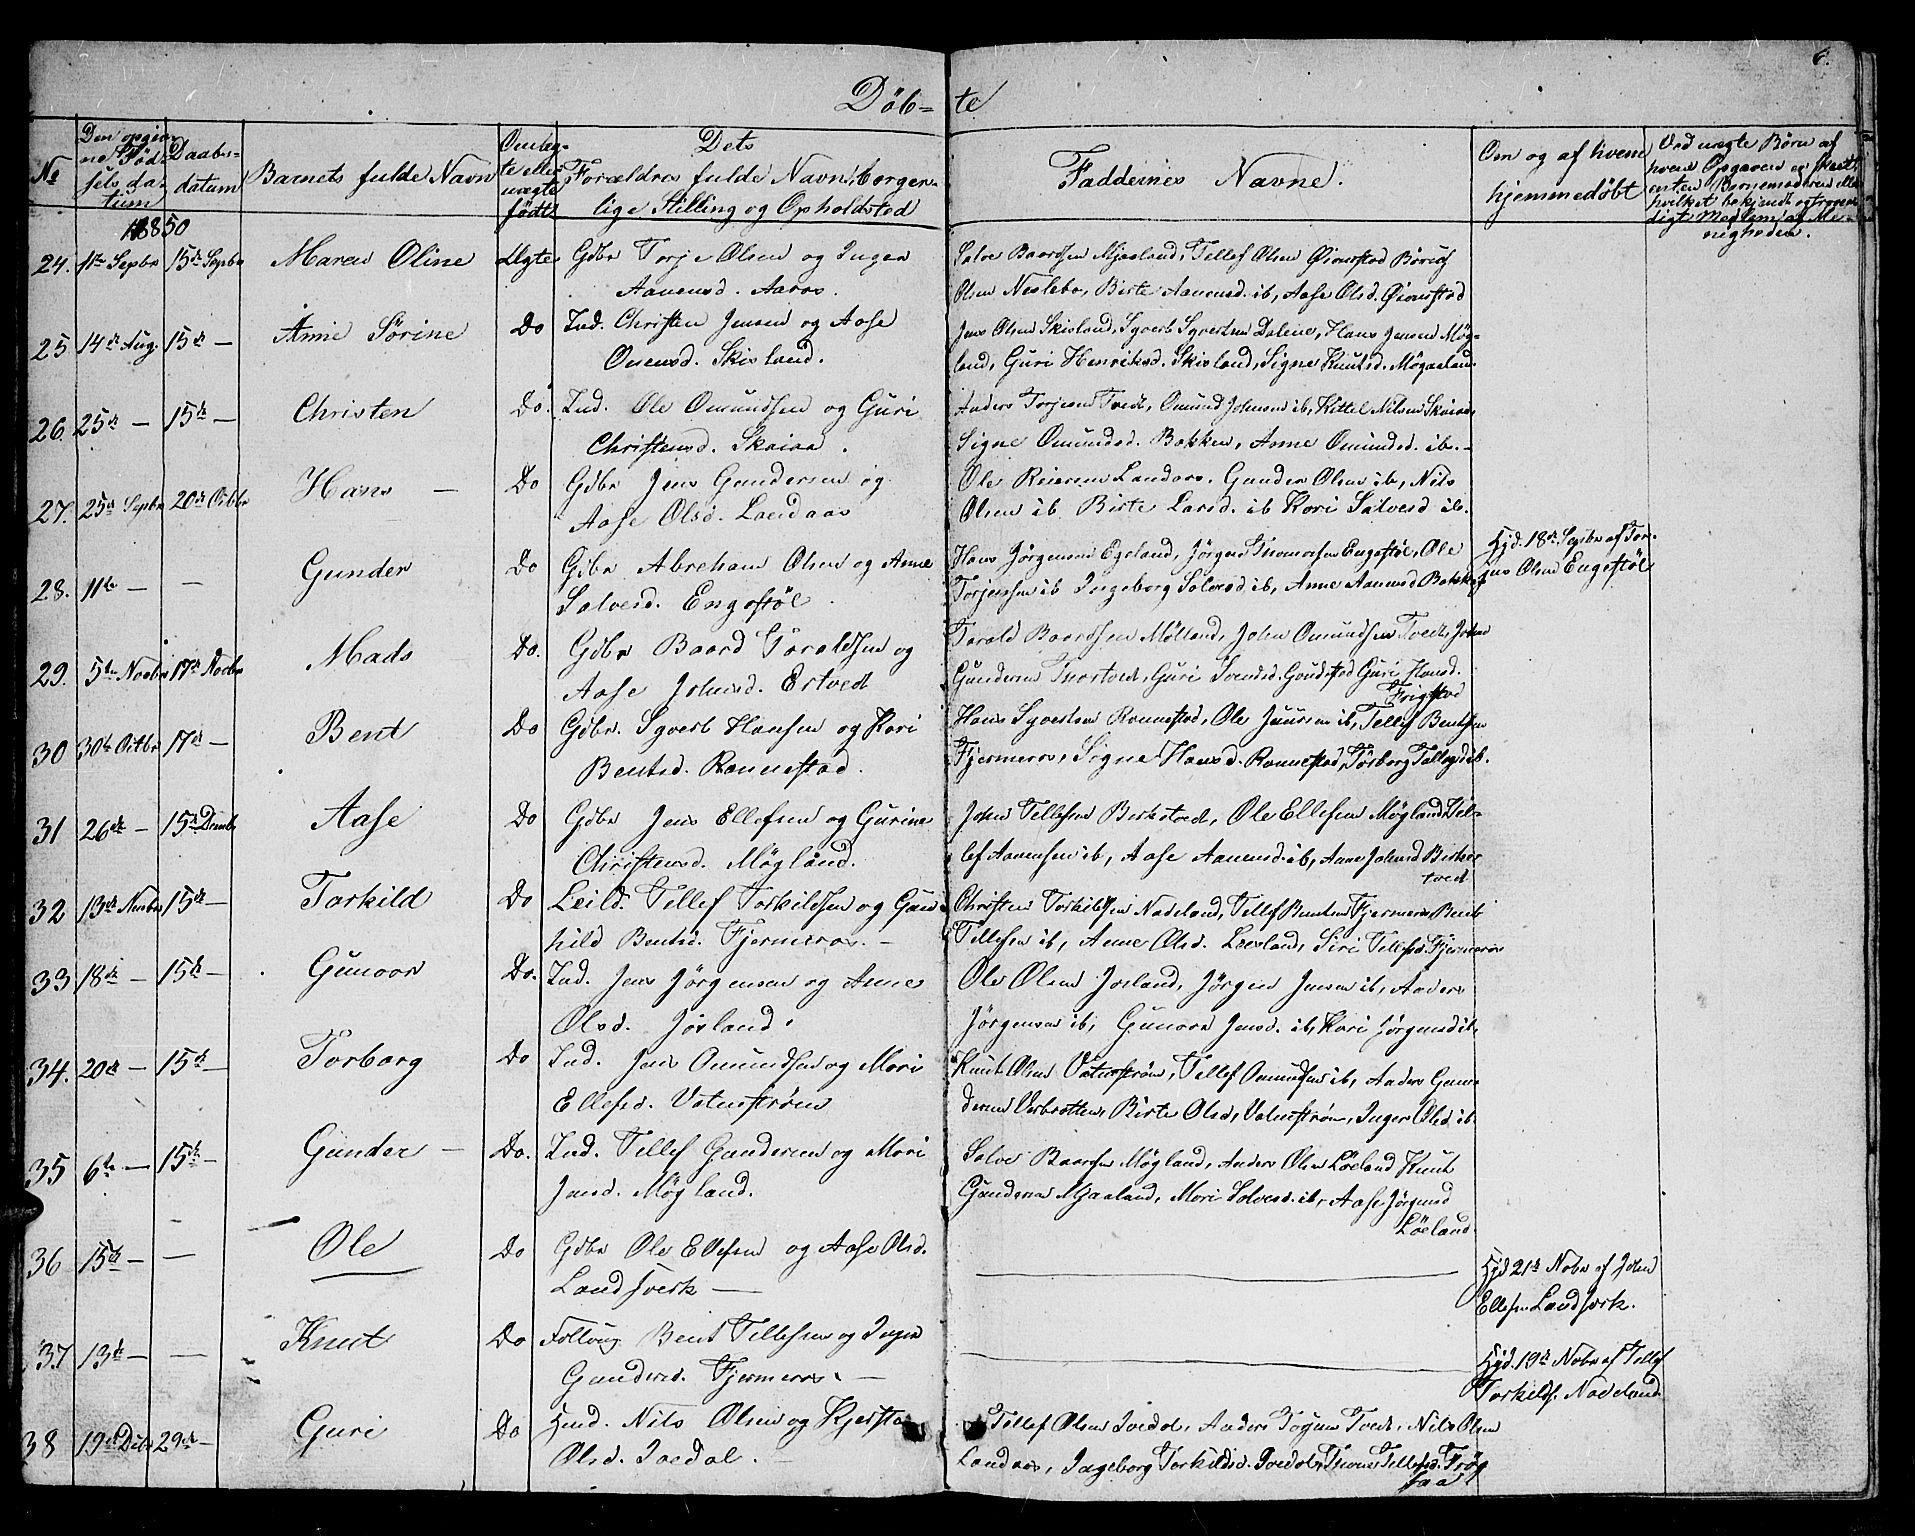 6.
Døb- te
No
Den opgivne Fødselsdatum
Daabsdatum
Barnets fulde Navn
Om ægte eller uægte født
Dets Forældres fulde Navn, borgerlige Stilling og Opholdsted
Faddernes Navne.
Om og af hvem hjemmedøbt
Ved uægte Børn af hvem Opgaven er skeet
1850
24. 11te Sepbr 15de Sepbr Maren Oline Ægte Gdbr Torje Olsen og Inger
Aanensd. Aaros.
Salve Baardsen Mjaaland, Tellef Olsen Øionstad Børuf
Olsen Neslebø, Birte Aanensd. ib, Aase Olsd. Øionstad
25 14de Aug. 15de — Anne Sørine Do Ind. Christen Jensen og Aase
Omensd. Skisland.
Jens Olsen Skisland, Syvert Syvertsen Dalene, Hans Jensen Møg-
land, Guri Henriksd. Skisland, Signe Knutsd. Møgaaland
26. 25de — 15de — Christen Do. Ind. Ole Omundsen og Guri
Christensd. Skaiaa.
Anders Torjesen Tvedt, Omund Johnsen ib, Kittel Nilsen Skaiaa,
Signe Omundsd. Bakken, Anne Omundsd. ib.
27. 25de Sepbr 20de Octbr Hans — Do Gdbr Jens Gundersen og
Aase Olsd. Landaas
Ole Reiersen Landaas. Gunder Olsen ib, Nils
Olsen ib Birte Larsd. ib Kari Salvesd ib.
28. 11te — — Gunder Do Gdbr Abraham Olsen og Anne
Salvesd. Engestøl.
Hans Jørgensen Egeland, Jørgen Thomesen Engestøl, Ole
Torjensen ib Ingeborg Salvesd ib, Anne Aanensd Bakken
Hjd. 18de Sepbr af Tor-
jus Olsen Engestøl
29. 5te Novbr 17de Novbr Mads Do. Gdbr Baard Taraldsen og
Aase Johnsd. Ertvedt
Tarald Baardsen Mølland, John Omundsen Tvedt, John
Gundersen Thortvedt, Guri Svensd. Goudestad Guri Hansd.
Frigstad
30 30te Octbr 17de — Bent Do Gdbr. Syvert Hansen og Kari
Bentsd. Rannestad.
Hans Syvertsen Rannestad, Ole Juursen ib, Tellef Bentsen
Fjermeros, Signe Hansd. Rannestad, Torborg Tallagsd ib.
31 26de — 15de Decembr Aase Do Gdbr Jens Ellefsen og Gurine
Christensd. Møgland.
John Tellefsen Birketvedt, Ole Ellefsen Møgland Tel-
lef Aanensen ib, Aase Aanensd. ib, Anne Johnsd Birke-
tvedt
32 13de Novbr 15de — Torkild Do Leild. Tellef Torkildsen og Gun-
hild Bentsd. Fjermeros. —
Christen Torkildsen Nadeland, Tellef Bentsen Fjermeros Bent
Tellefsen ib, Anne Olsd. Loeland, Siri Tellefsd. Fjermeros
33 18de — 15de — Gunoor Do. Ind. Jens Jørgensen og Anne
Olsd. Jorland.
Ole Olsen Joreland, Jørgen Jensen ib, Anders
Jørgensen ib, Gunoor Jensd. ib, Kari Jørgensd ib.
34. 20de — 15de — Torborg Do Ind. Jens Omundsen og Mari
Ellefsd. Vatnestrøm
Knut Olsen Vatnestrøm, Tellef Omundsen ib, Anders Gun-
dersen Verbratten, Birte Olsd, Vatnestrøm, Inger Olsd ib
35 6te — 15de — Gunder — Do. Ind. Tellef Gundersen og Mari
Jensd. Møgland.
Salve Baardsen Møgland, Anders Olsen Løeland Knut
Gundersen Mjaaland, Mari Salvesd. ib, Aase Jørgensd
Løeland
36 15de — — Ole Do Gdbr Ole Ellefsen og Aase Olsd.
Landsverk —
Hjd 21de Nobr af John
Ellefsen Landsverk.
37. 13de — — Knut Do Follaug. Bent Tellefsen og Inger
Gundersd. Fjermeros. —
Hjd. 19de Nobr af Tellef
Torkilds. Nadeland
38 19de Debr 29de — Guri Do Huusd. Nils Olsen og Kjersti
Olsd. Ivedal. —
Tellef Olsen Ivedal, Anders Torjesen Tvedt, Nils Olsen
Landaas, Ingeborg Torkildsd. Ivedal, Thone Tellefsd. Frøy-
saa